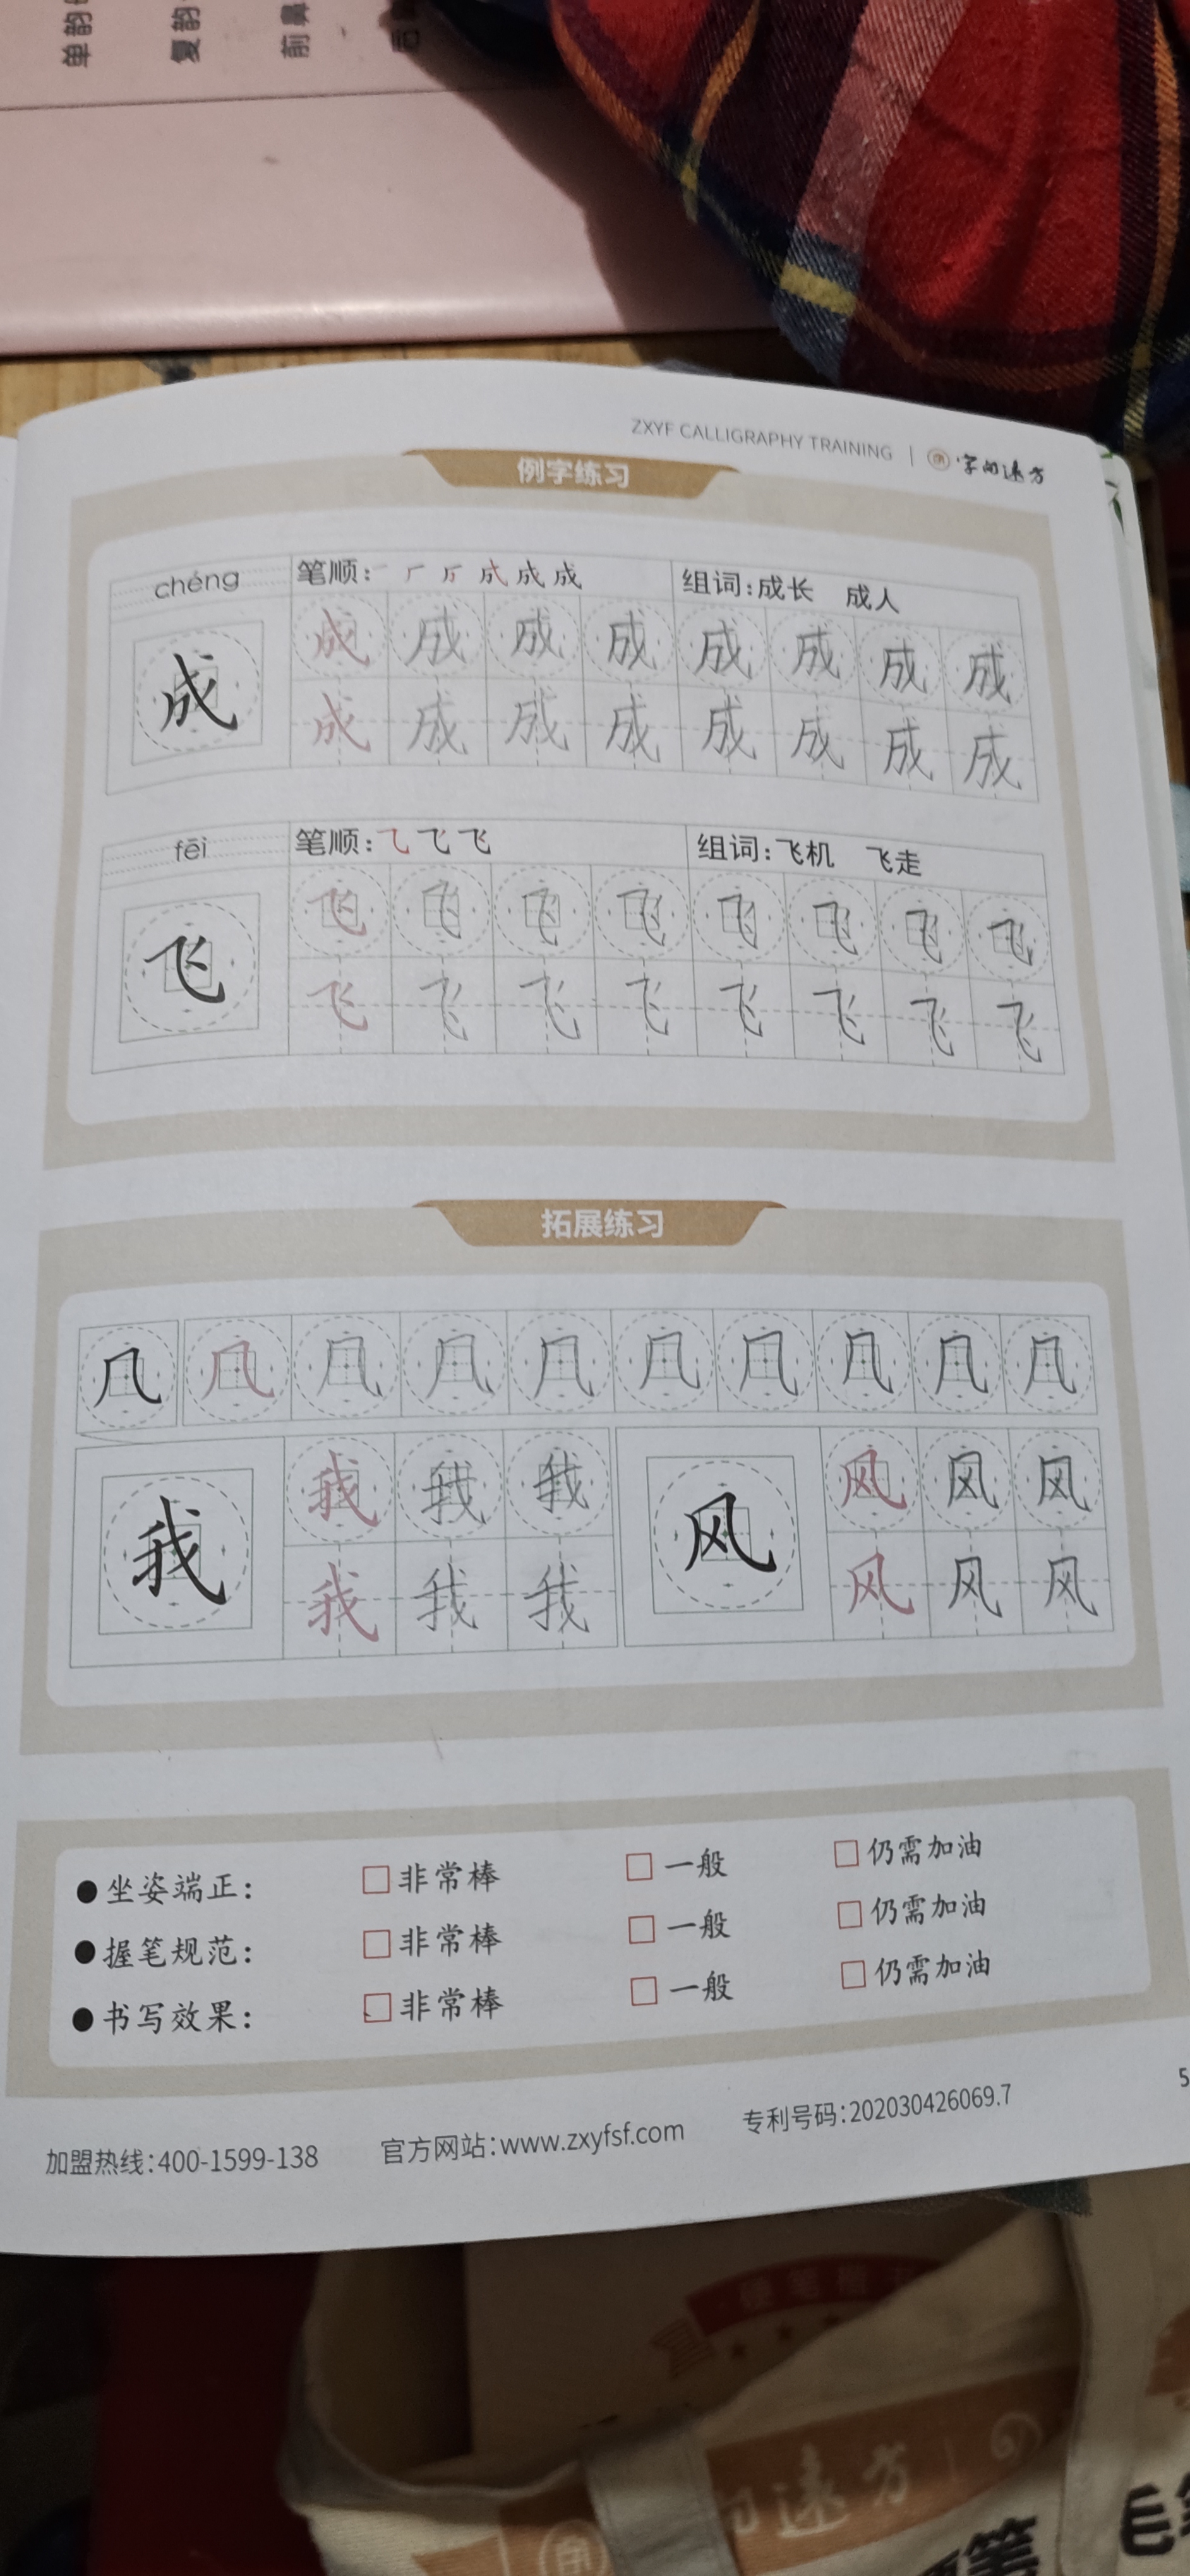 单韵
复韵
前鼻
ZXYF CALLIGRAPHY TRAINING | 字向远方
例字练习
chéng 笔顺: 一 厂 厅 成 成 成 组词:成长 成人
成 成 成 成 成 成 成 成 成
成 成 成 成 成 成 成 成
fēi 笔顺: 乁 飞 飞 组词:飞机 飞走
飞 飞 飞 飞 飞 飞 飞 飞 飞
飞 飞 飞 飞 飞 飞 飞 飞
拓展练习
几 几 几 几 几 几 几 几 几 几
我 我 我 我 风 风 风 风
我 我 我 风 风 风
●坐姿端正: □非常棒 □一般 □仍需加油
●握笔规范: □非常棒 □一般 □仍需加油
●书写效果: □非常棒 □一般 □仍需加油
5
加盟热线:400-1599-138 官方网站:www.zxyfsf.com 专利号码:202030426069.7
硬笔楷
向远方
硬笔
毛笔